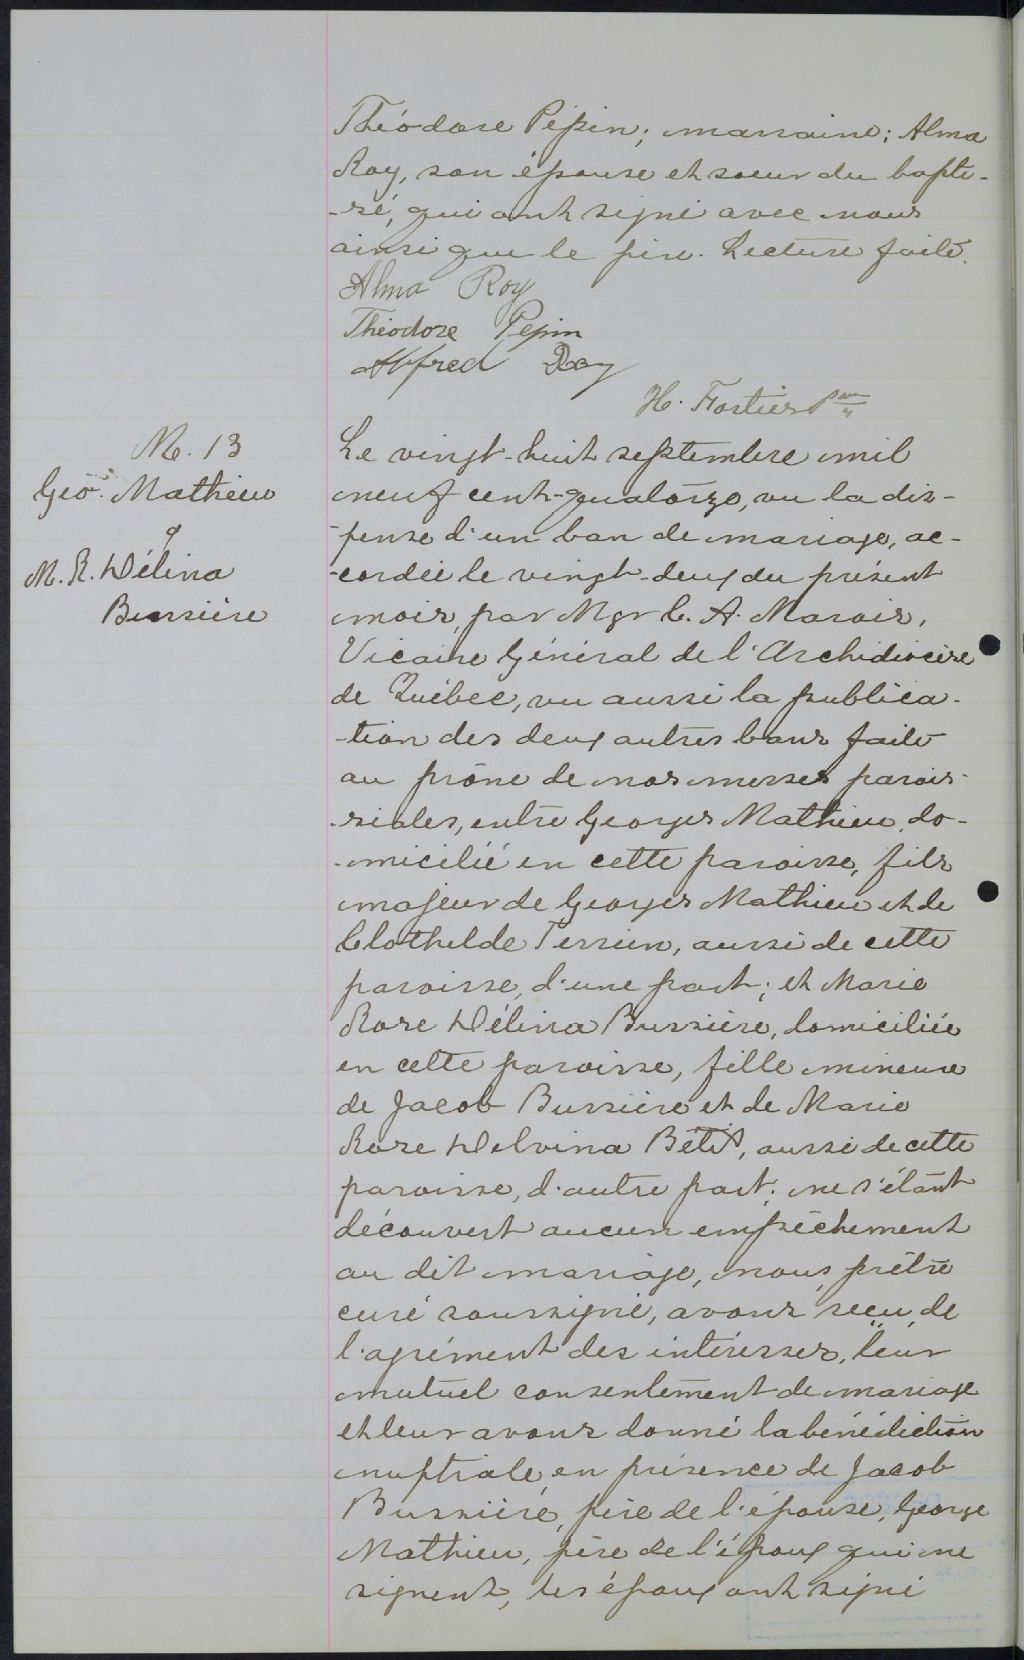 Théodore Pépin; marraine; Alma
Roy, son épouse et soeur du bapti-
-sé, qui ont signé avec nous
ainsi que le père. Lecture faite.
Alma Roy
Théodore Pepin
Alfred Roy
H. Fortier Ptre
M. 13
Geo. Mathieu
&
M. R. Délina
Bussière
Le vingt-huit septembre mil
neuf cent-quatorze, vu la dis-
-pense d'un ban de mariage, ac-
-cordée le vingt-deux du présent
mois, par Mgr C. A. Marois,
Vicaire Général de l'Archidiocèse
de Québec, vu aussi la publica-
-tion des deux autres bans faite
au prône de nos messes parois-
-siales, entre Georges Mathieu, do-
-micilié en cette paroisse, fils
majeur de Georges Mathieu et de
Clothilde Terrien, aussi de cette
paroisse, d'une part; et Marie
Rose Délina Bussière, domiciliée
en cette paroisse, fille mineure
de Jacob Bussière et de Marie
Rose Delvina Bétit, aussi de cette
paroisse, d'autre part; ne s'étant
découvert aucun empêchement
au dit mariage, nous, prêtre
curé soussigné, avons reçu de
l'agrément des intéressés, leur
mutuel consentement de mariage
et leur avons donné la bénédiction
nuptiale en présence de Jacob
Bussière, père de l'épouse, George
Mathieu, père de l'époux qui ne
signent, les époux ont signé